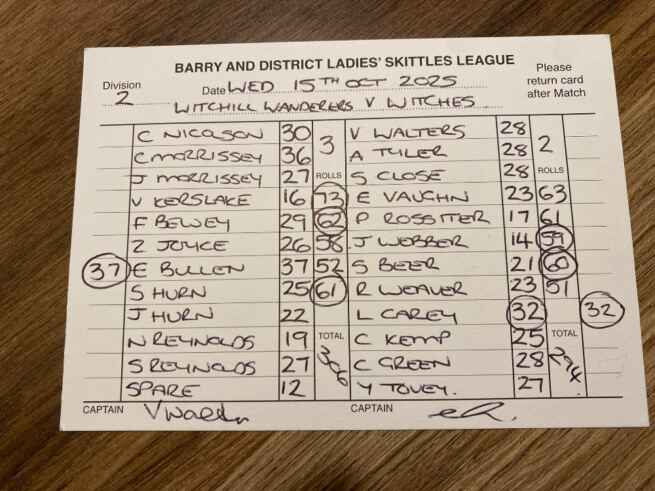 BARRY AND DISTRICT LADIES' SKITTLES LEAGUE
Division 2
Date WED 15TH OCT 2025
Please return card after Match
WITCHILL WANDERERS V WITCHES
C NICOLSON 30 3 V WALTERS 28 2
C MORRISSEY 36 A TYLER 28
J MORRISSEY 27 ROLLS S CLOSE 28 ROLLS
V KERSLAKE 16 73 E VAUGHN 23 63
F BEWEY 29 62 P ROSSITER 17 61
Z JOYCE 26 58 J WEBBER 14 59
37 E BULLEN 37 52 S BEER 21 60
S HURN 25 61 R WEAVER 23 51
J HURN 22 L CAREY 32 32
N REYNOLDS 19 TOTAL C KEMP 25 TOTAL
S REYNOLDS 27 306 C GREEN 28 294.
SPARE 12 Y TOVEY. 27
CAPTAIN CAPTAIN